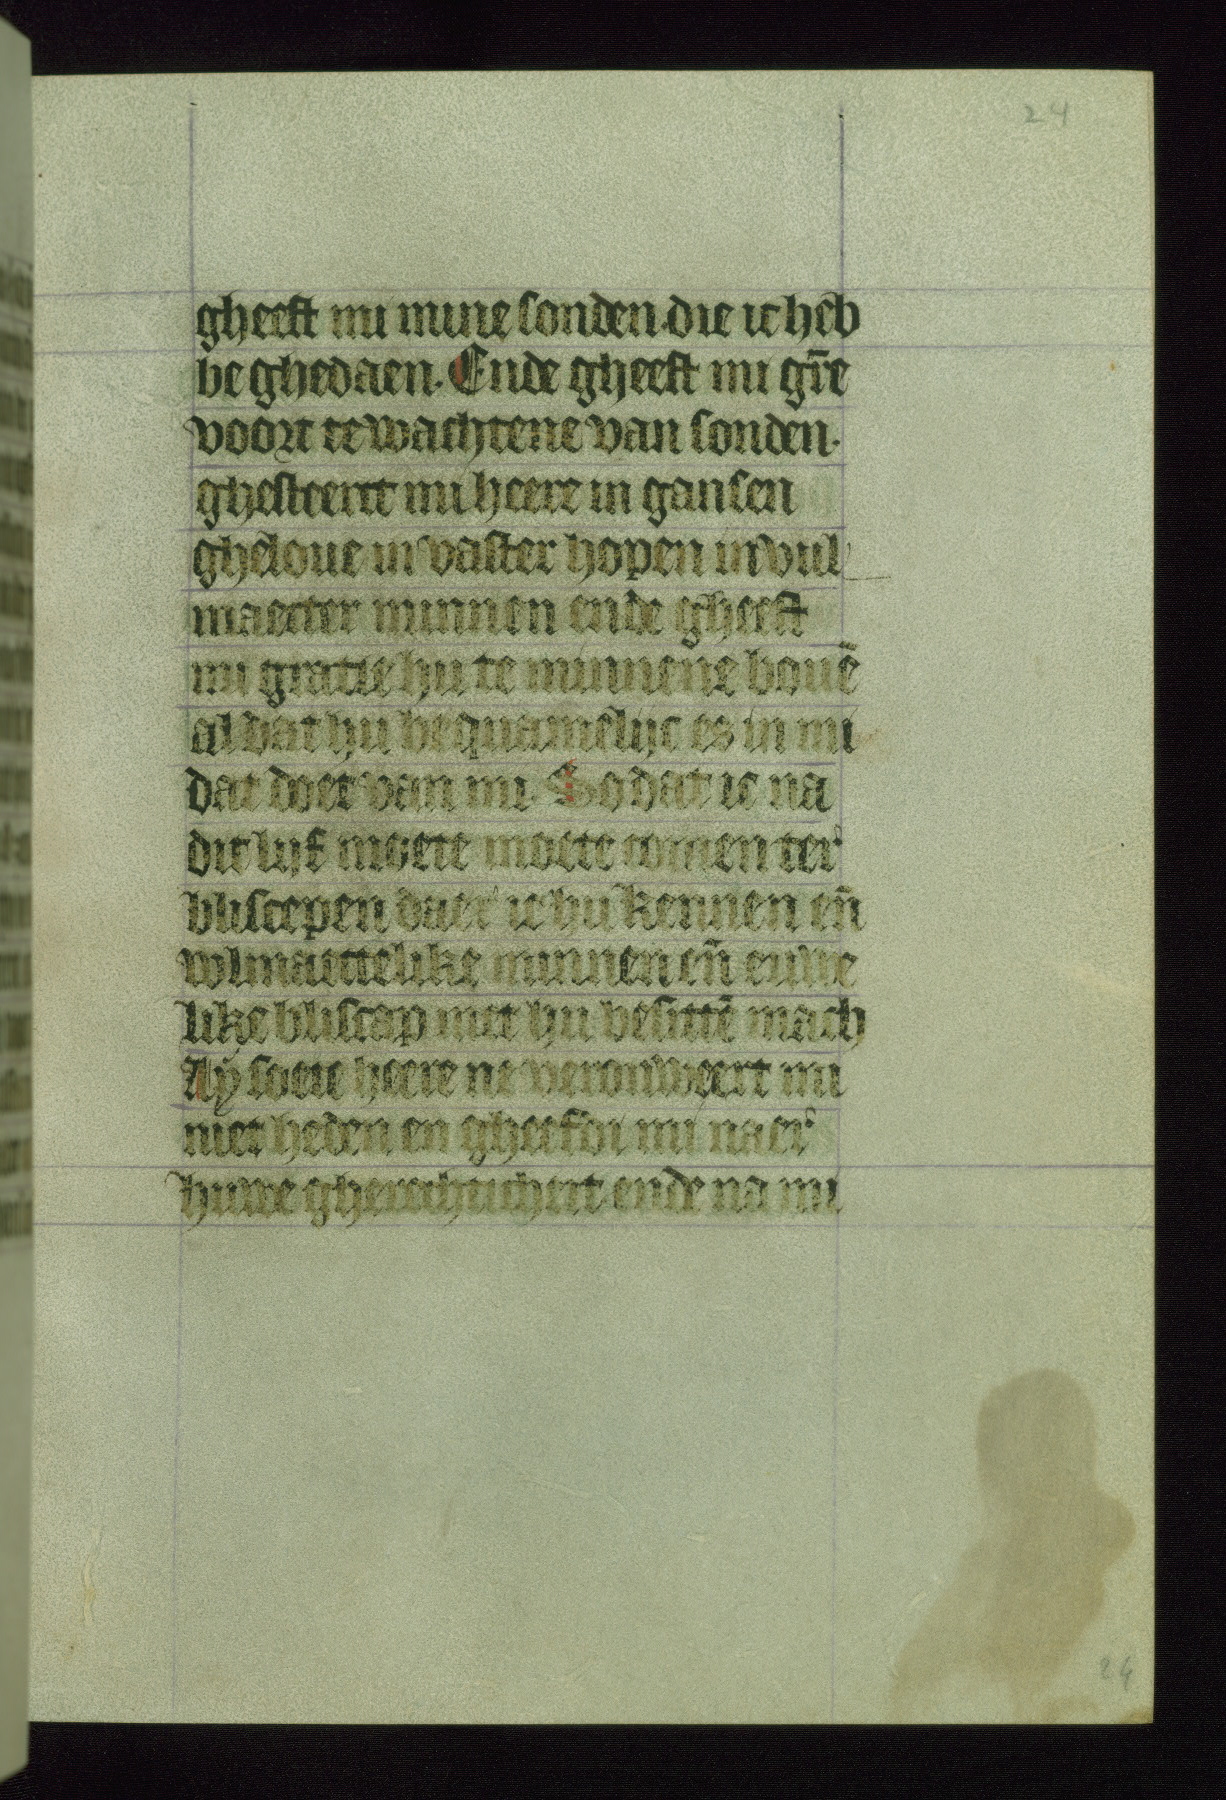 24
gheeft mi mine sonden die ic heb
be ghedaen. Ende gheeft mi gr̄e
voort te wachtene van sonden.
ghesteerct mi heere in gansen
gheloue in vaster hopen in vul
maecter minnen ende gheeft
mi gratie hu te minnene bouē
al dat hu bequamelijc es in mi
dat doet van mi. So dat ic na
dit lijf moete moete comen ter
bliscepen daer ic hu kennen en̄
volmaectelike minnen en̄ euwe
like bliscap met hu besittē mach
Ay soete heere ne veronweert mi
niet heden en gheefdi mi naer
huwe gherechticheit ende na mi
24